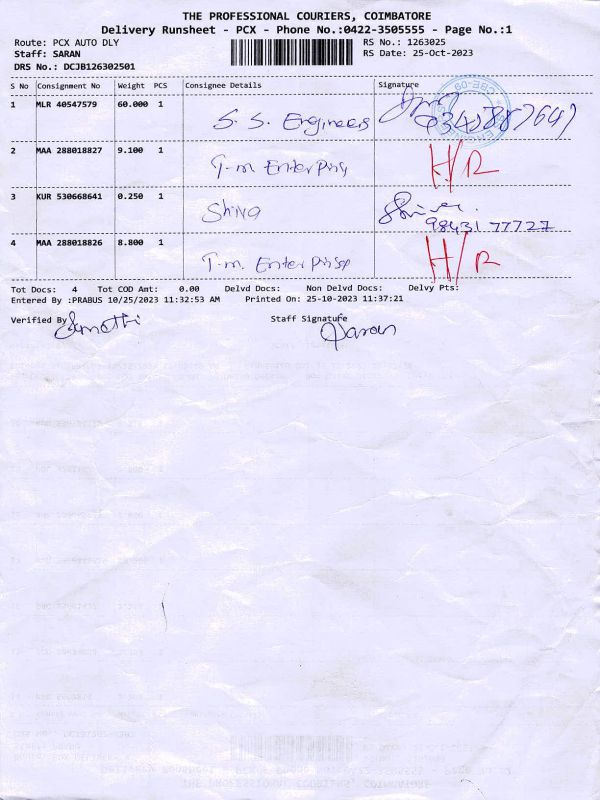 THE PROFESSIONAL COURIERS, COIMBATORE
Delivery Runsheet - PCX - Phone No.:0422-3505555 - Page No.:1
Route: PCX AUTO DLY RS No.: 1263025
Staff: SARAN RS Date: 25-Oct-2023
DRS No.: DCJB126302501
S No Consignment No Weight PCS Consignee Details Signature
1 MLR 40547579 60.000 1
S. S. Engineers
2 MAA 288018827 9.100 1
T-m Enterprisy H/R
3 KUR 530668641 0.250 1
Shiva 98431 77727
4 MAA 288018826 8.800 1
T.m. Enterprise H/R
Tot Docs: 4 Tot COD Amt: 0.00 Delvd Docs: Non Delvd Docs: Delvy Pts:
Entered By :PRABUS 10/25/2023 11:32:53 AM Printed On: 25-10-2023 11:37:21
Verified By Staff Signature
Saran